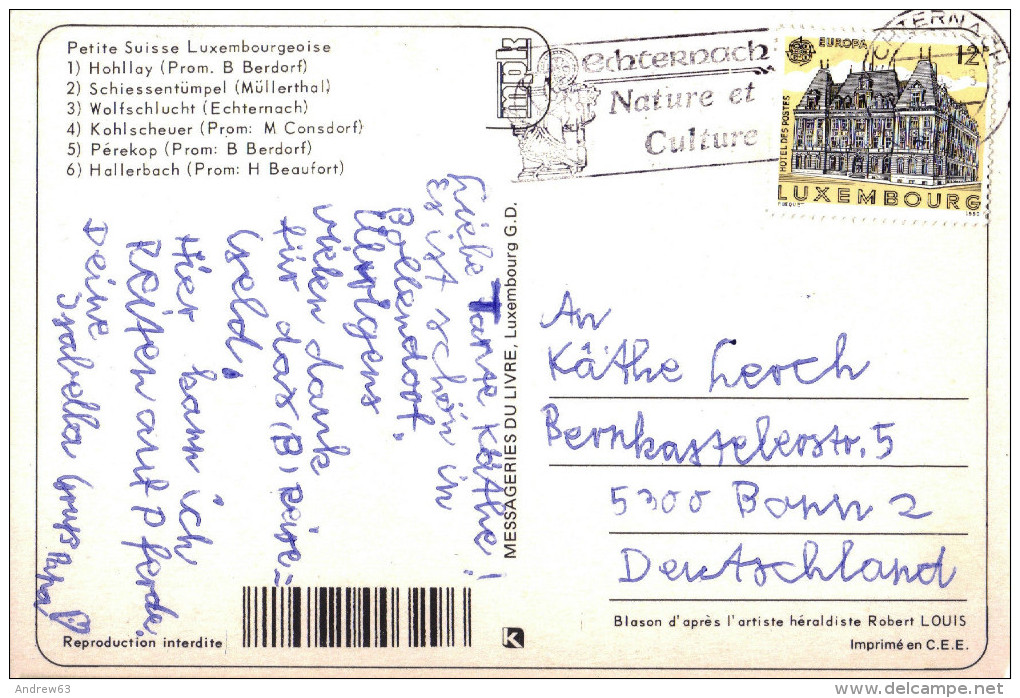 Petite Suisse Luxembourgeoise
1) Hohllay (Prom. B Berdorf)
2) Schiessentümpel (Müllerthal)
3) Wolfschlucht (Echternach)
4) Kohlscheuer (Prom: M Consdorf)
5) Pérekop (Prom: B Berdorf)
6) Hallerbach (Prom: H Beaufort)
mpk
echternach
Nature et
Culture
ECHTERNACH
EUROPA
12F
HOTEL DES POSTES
LUXEMBOURG
Liebe Tante Käthe!
Es ist schön in
Bollendorf.
Übrigens
vielen dank
für das (B) Reise=
geld!
Hier kann ich
Reiten auf Pferde.
Deine
Isabella Gruss Papa
MESSAGERIES DU LIVRE, Luxembourg G.D.
An
Käthe Lerch
Bernkastelerstr. 5
5300 Bonn 2
Deutschland
Reproduction interdite
K
Blason d'après l'artiste héraldiste Robert LOUIS
Imprimé en C.E.E.
Andrew63
www.delcampe.net